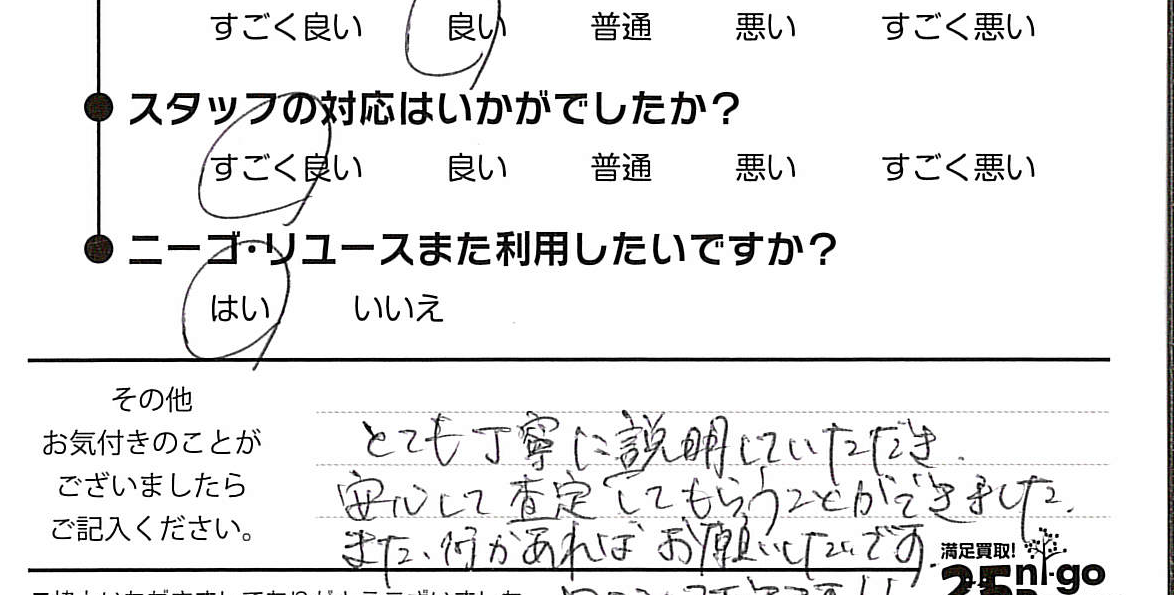 すごく良い 良い 普通 悪い すごく悪い
スタッフの対応はいかがでしたか？
すごく良い 良い 普通 悪い すごく悪い
ニーゴ・リユースまた利用したいですか？
はい いいえ
その他
お気付きのことが
ございましたら
ご記入ください。
とても丁寧に説明していただき、
安心して査定してもらうことができました。
また、何かあればお願いしたいです。
満足買取!
ni-go